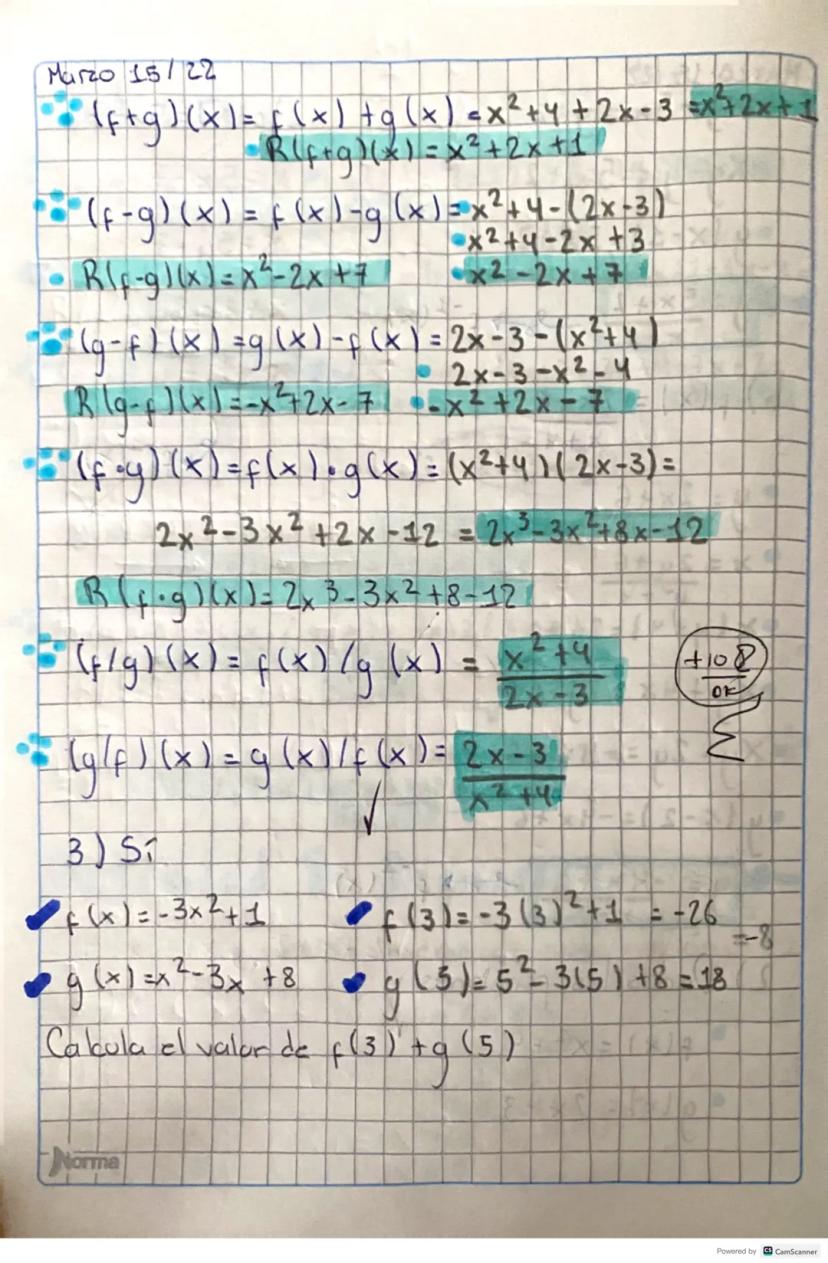 Marzo 15/22
(f+g)(x)= f(x)+g(x) = x²+4+2x-3 =x²+2x+1
R(f+g)(x)=x²+2x+1
(f-g)(x)= f(x)-g(x)= x²+4-(2x-3)
x²+4-2x+3
R(f-g)(x)=x²-2x+7 x²-2x+7
(g-f)(x)=g(x)-f(x)=2x-3-(x²+4)
2x-3-x²-4
R(g-f)(x)=-x²+2x-7 -x²+2x-7
(f·g)(x)=f(x)·g(x)=(x²+4)(2x-3)=
2x²-3x²+2x-12 = 2x³-3x²+8x-12
R(f·g)(x)=2x³-3x²+8-12
(f/g)(x)= f(x)/g(x) = x²+4 / 2x-3
(g/f)(x)=g(x)/f(x)= 2x-3 / x²+4
3) Sí
f(x)=-3x²+1 f(3)=-3(3)²+1 =-26
=-8
g(x)=x²-3x+8 g(5)=5²-3(5)+8=18
Calcula el valor de f(3)+g(5)
Norma
Powered by CS CamScanner